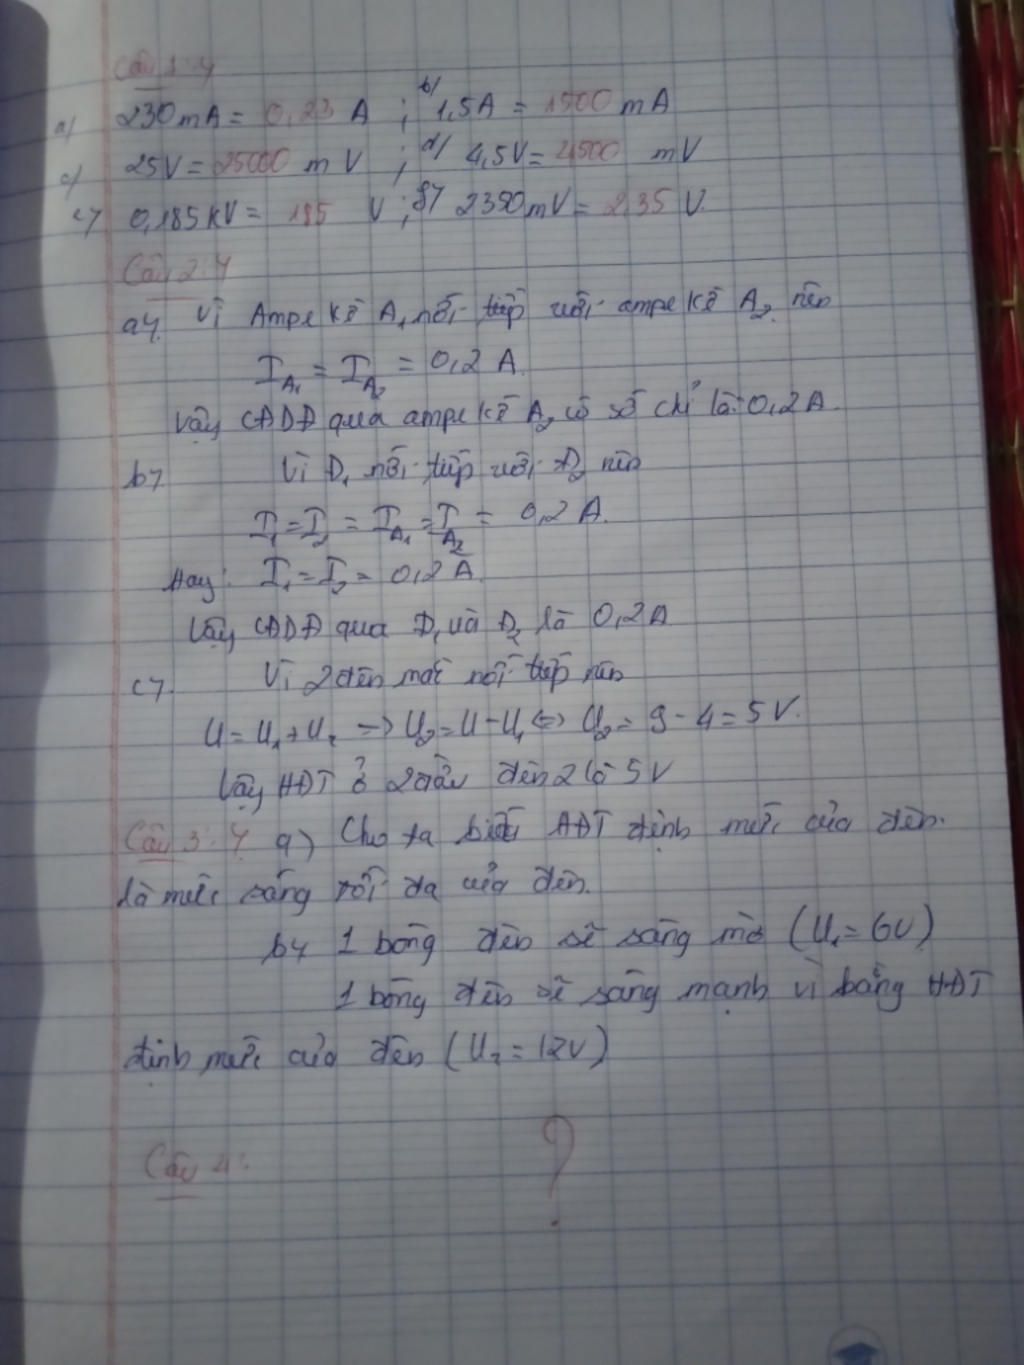 Câu 1:
a) 230mA = 0,23 A ; b) 1,5A = 1500 mA
c) 25V = 25000 mV ; d) 4,5V = 4500 mV
e) 0,185kV = 185 V ; g) 2350mV = 2,35 V.
Câu 2:
a) Vì Ampe kế A₁ nối tiếp với ampe kế A₂ nên
I_A₁ = I_A₂ = 0,2 A
Vậy CĐDĐ qua ampe kế A₂ có số chỉ là: 0,2A.
b) Vì Đ₁ nối tiếp với Đ₂ nên
I₁ = I₂ = I_A₁ = I_A₂ = 0,2 A.
Hay: I₁ = I₂ = 0,2 A
Vậy CĐDĐ qua Đ₁ và Đ₂ là 0,2A
c) Vì 2 đèn mắc nối tiếp nên
U = U₁ + U₂ => U₂ = U - U₁ <=> U₂ = 9 - 4 = 5V.
Vậy HĐT ở 2 đầu đèn 2 là 5V
Câu 3: a) Cho ta biết HĐT định mức của đèn.
là mức sáng tối đa của đèn.
b) 1 bóng đèn sẽ sáng mờ (U₁ = 6V)
1 bóng đèn sẽ sáng mạnh vì bằng HĐT
định mức của đèn (U₂ = 12V)
Câu 4: ?